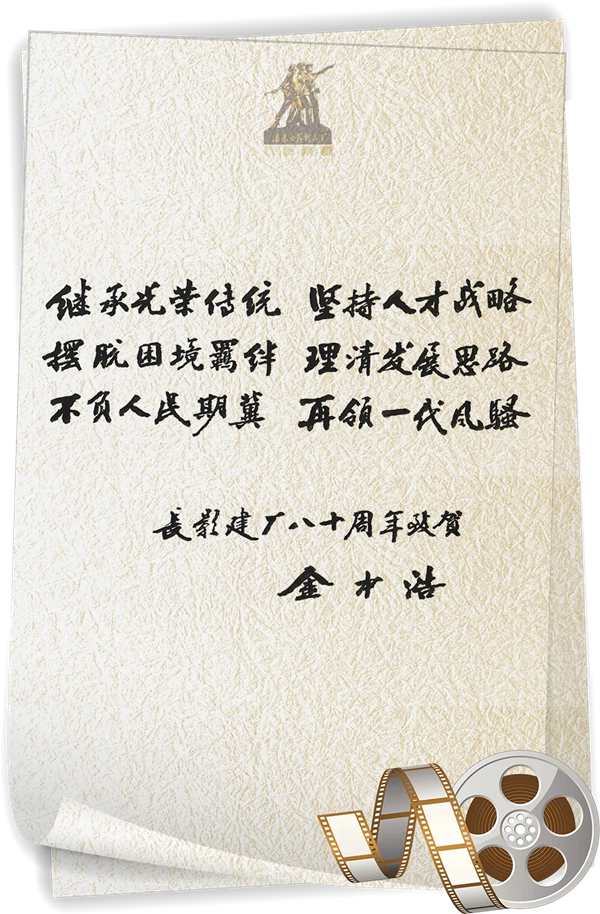 继承光荣传统 坚持人才战略
摆脱困境羁绊 理清发展思路
不负人民期冀 再领一代风骚
長影建厂八十周年致賀
金才浩